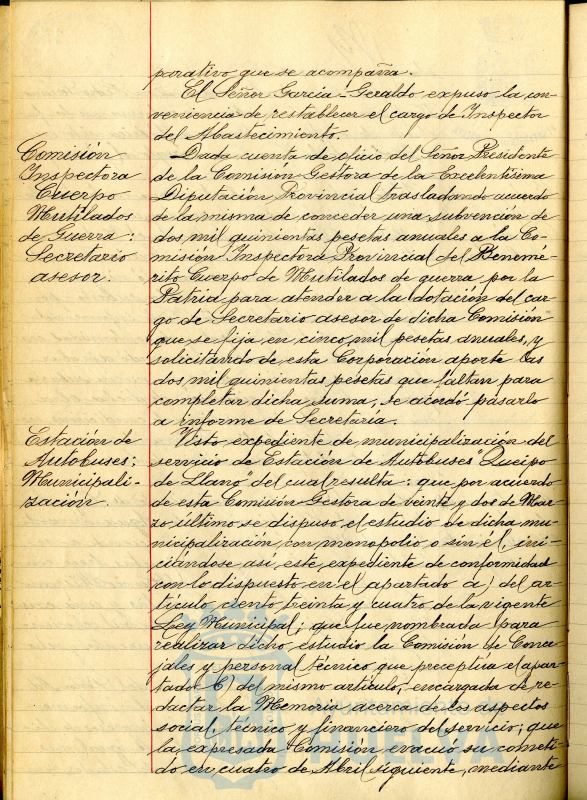 parativo que se acompaña.
El Señor García-Geraldo expuso la con-
veniencia de restablecer el cargo de Inspector
del Abastecimiento.
Comisión
Inspectora
Cuerpo
Mutilados
de Guerra:
Secretario
asesor.
Dada cuenta de oficio del Señor Presidente
de la Comisión Gestora de la Excelentísima
Diputación Provincial trasladando acuerdo
de la misma de conceder una subvención de
dos mil quinientas pesetas anuales a la Co-
misión Inspectora Provincial del Benemé-
rito Cuerpo de Mutilados de guerra por la
Patria para atender a la dotación del car-
go de Secretario asesor de dicha Comisión
que se fija en cinco mil pesetas anuales, y
solicitando de esta Corporación aporte las
dos mil quinientas pesetas que faltan para
completar dicha suma, se acordó pasarlo
a informe de Secretaría.
Estación de
Autobuses:
Municipali-
zación.
Visto expediente de municipalización del
servicio de Estación de Autobuses "Queipo
de Llano" del cual resulta: que por acuerdo
de esta Comisión Gestora de veinte y dos de Mar-
zo último se dispuso el estudio de dicha mu-
nicipalización con monopolio o sin él, ini-
ciándose así este expediente de conformidad
con lo dispuesto en el apartado a) del ar-
tículo ciento treinta y cuatro de la vigente
Ley Municipal; que fue nombrada para
realizar dicho estudio la Comisión de Conce-
jales y personal técnico que preceptúa el apar-
tado b) del mismo artículo, encargada de re-
dactar la Memoria acerca de los aspectos
social, técnico y financiero del servicio; que
la expresada Comisión evacuó su cometi-
do en cuatro de Abril siguiente, mediante
HUELVA